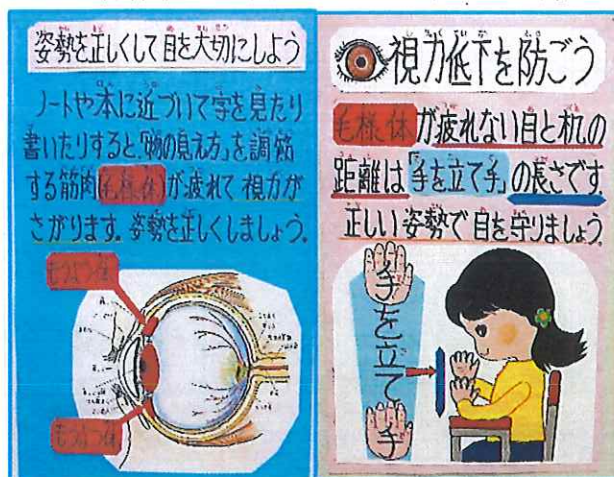 姿勢を正しくして目を大切にしよう
ノートや本に近づいて字を見たり
書いたりすると、「物の見え方」を調節
する筋肉(毛様体)が疲れて視力が
さがります。姿勢を正しくしましょう。
もうよう体
もうよう体
視力低下を防ごう
毛様体が疲れない目と机の
距離は「手を立て手」の長さです。
正しい姿勢で目を守りましょう。
手を立て手